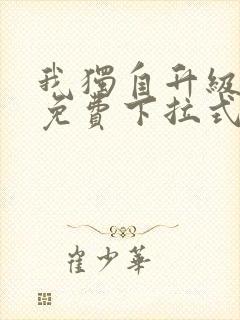 我獨自升級
免費下拉式
崔少華